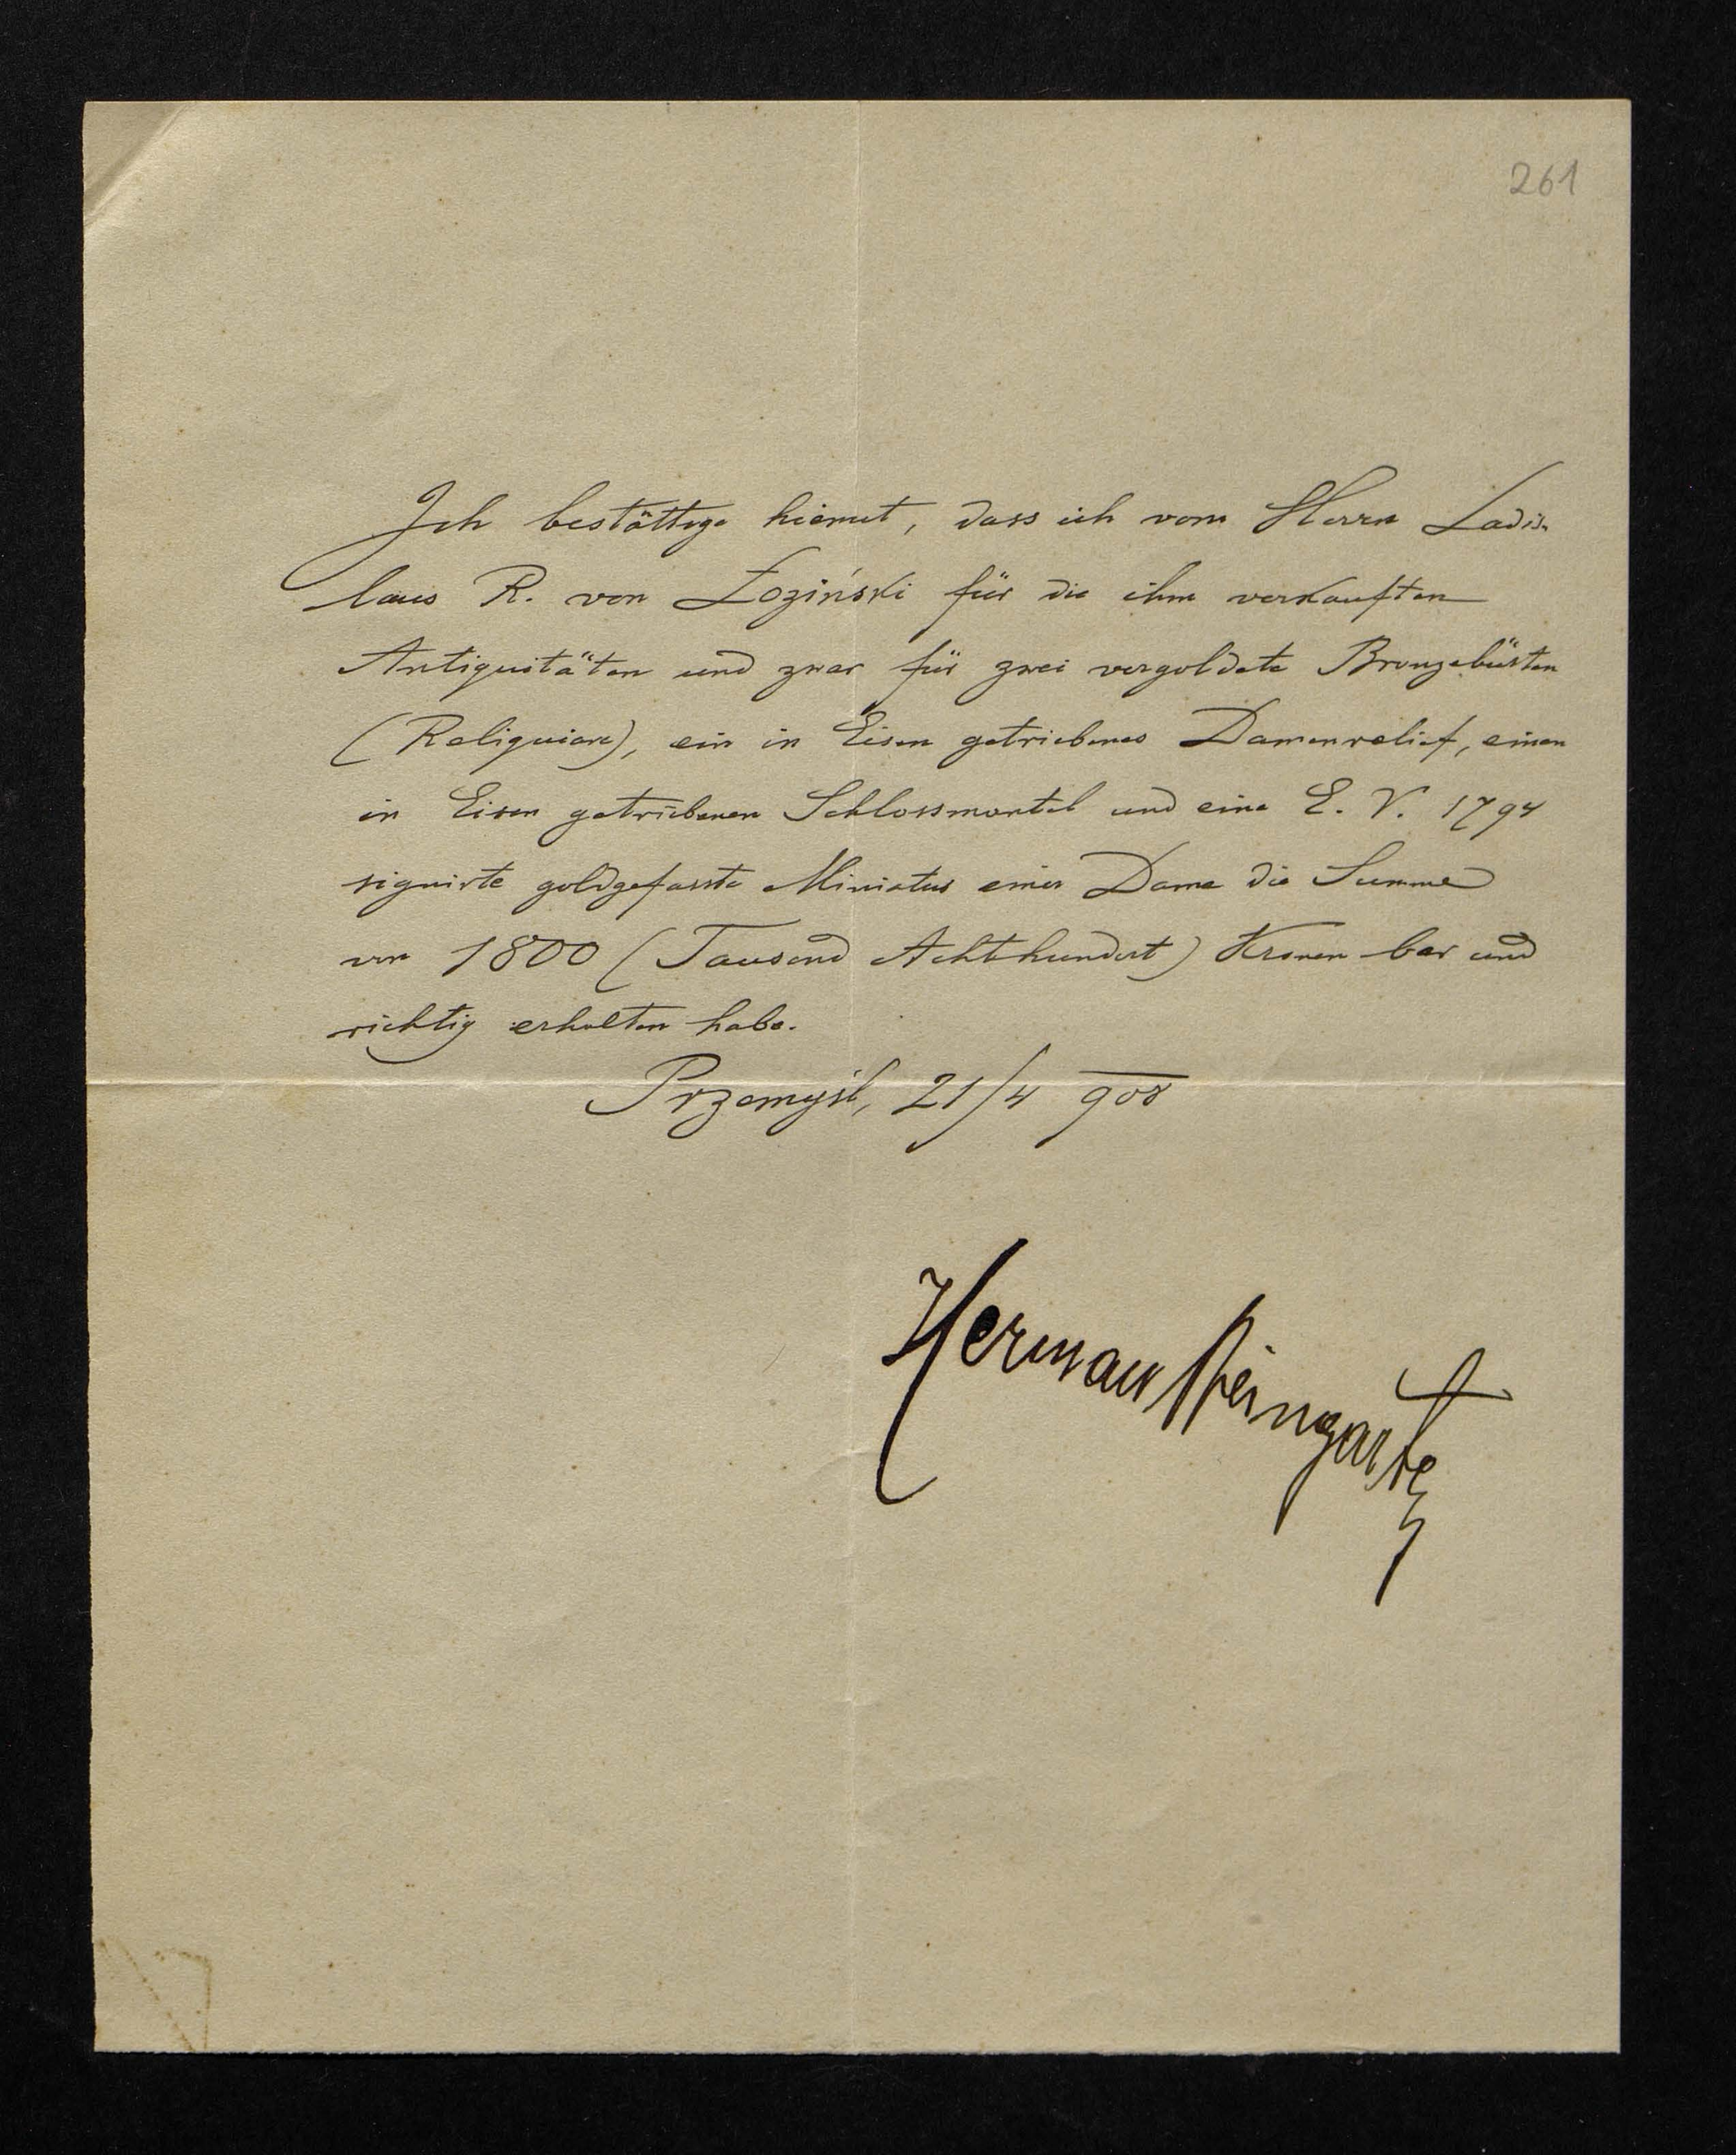 261
Ich bestättige hiemit, dass ich vom Herrn Ladis-
laus R. von Łoziński für die ihm verkauften
Antiquitäten und zwar für zwei vergoldete Bronzebüsten
(Reliquiare), ein in Eisen getriebenes Damenrelief, einen
in Eisen getriebenen Schlossmantel und eine E. V. 1794
signirte goldgefasste Miniatur einer Dame die Summe
von 1800 (Tausend Achthundert) Kronen bar und
richtig erhalten habe.
Przemyśl, 21/4 908
Herman